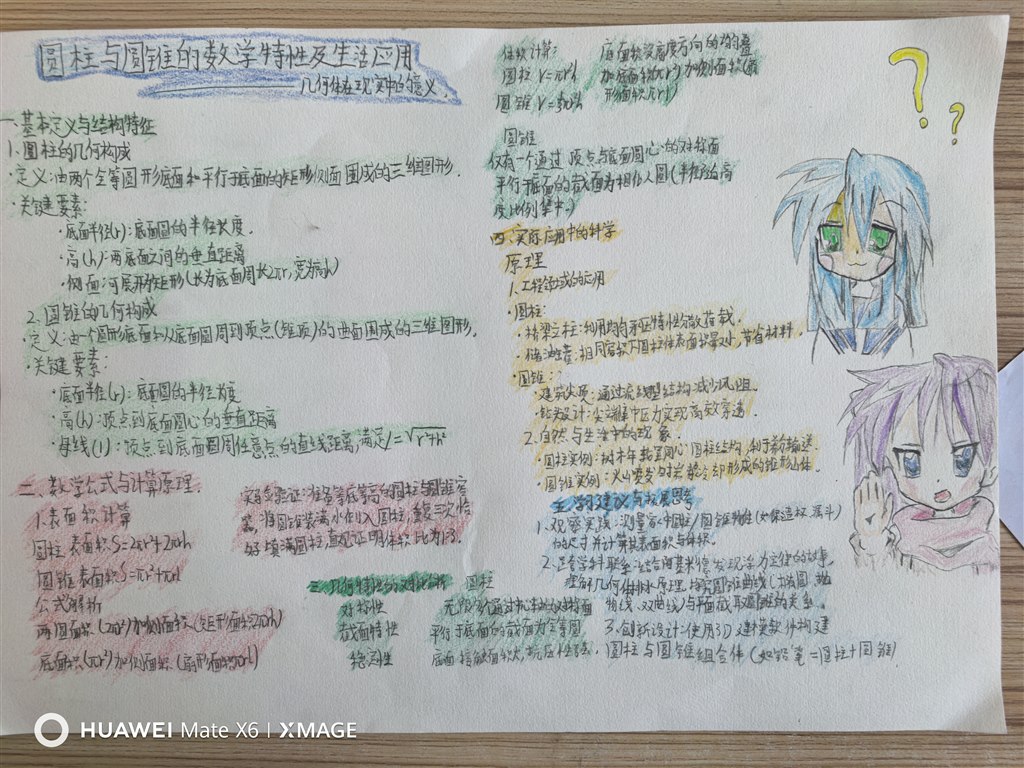 圆柱与圆锥的数学特性及生活应用
几何体在现实中的意义
一、基本定义与结构特征
1、圆柱的几何构成
·定义:由两个全等圆形底面和平行于底面的矩形侧面围成的三维图形.
·关键要素:
·底面半径(r):底面圆的半径长度.
·高(h):两底面之间的垂直距离
·侧面:可展开为矩形(长为底面周长2πr,宽为高h)
2.圆锥的几何构成
·定义:由一个圆形底面和从底面圆周到顶点(锥顶)的曲面围成的三维图形.
·关键要素:
·底面半径(r):底面圆的半径长度
·高(h):顶点到底面圆心的垂直距离
·母线(l):顶点到底面圆周任意点的直线距离,满足l=√r²+h²
二、数学公式与计算原理.
1.表面积计算
圆柱表面积S=2πr²+2πrh
圆锥表面积S=πr²+πrl
公式解析
两圆面积(2πr²)加侧面积(矩形面积2πrh)
底面积(πr²)加侧面积(扇形面积πrl)
实验验证:准备等底等高的圆柱与圆锥容
器,将圆锥装满水倒入圆柱,重复三次恰
好填满圆柱,直观证明体积比为1:3.
三、几何特性的对比分析 圆柱
对称性 无限多个通过轴线的对称面
截面特性 平行于底面的截面为全等圆
稳定性 底面接触面积大,抗压性强.
体积计算:
圆柱V=πr²h
圆锥V=⅓πr²h
底面积沿高度方向的均匀叠
加底面积(πr²)加侧面积(扇
形面积πrl)
圆锥
仅有一个通过顶点与底面圆心的对称面
平行于底面的截面为相似圆(半径随高
度比例
四、实际应用中的科学
原理
1、工程领域的应用
·圆柱:
·桥梁立柱:利用均匀承压特性分散荷载.
·储油罐:相同容积下圆柱体表面积最小,节省材料.
·圆锥:
·建筑尖顶:通过流线型结构减少风阻.
·钻头设计:尖端集中压力实现高效穿透.
2.自然与生活中的现象.
·圆柱实例:树木年轮呈同心圆柱结构,利于养分输送
·圆锥实例:火山喷发物堆积冷却形成的锥形山体.
五、学习建议与拓展思考
1、观察实践:测量家中圆柱/圆锥物体(如保温杯、漏斗)
的尺寸并计算其表面积与体积.
2.跨学科联系:结合阿基米德发现浮力定律的故事,
理解几何体排水原理,探究圆锥曲线(椭圆、抛
物线、双曲线)与平面截取圆锥的关系.
3、创新设计:使用3D建模软件构建
圆柱与圆锥组合体(如铅笔=圆柱+圆锥)
??
HUAWEI Mate X6 | XMAGE